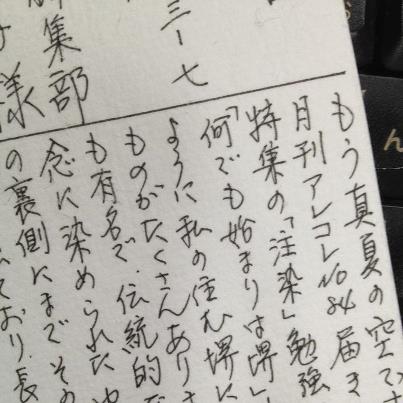 三ー七
集部
様
もう真夏の空で
月刊アレコレNo84届き
特集の「注染」勉強
「何でも始まりは堺」
ように私の住む堺に
ものがたくさんあり
も有名で、伝統的な
念に染められた
の裏側にまでその
ており、長
ん